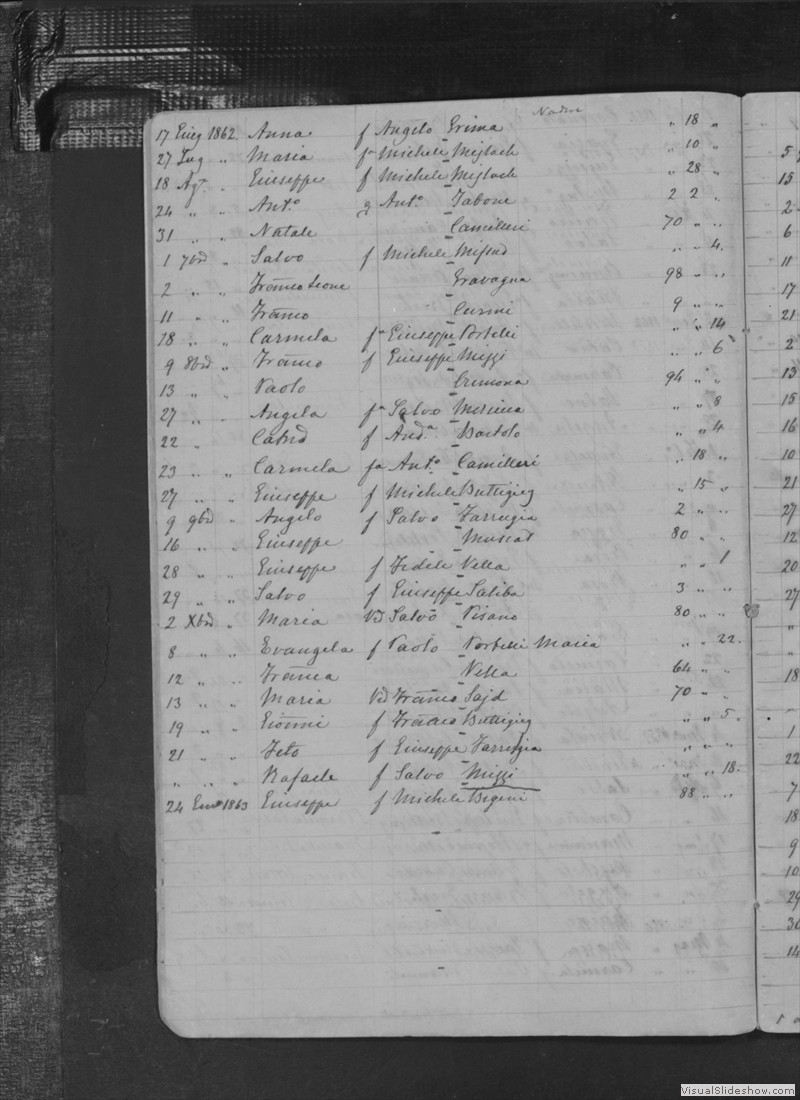 Nadur
17 Giug 1862 Anna f Angelo Grima „ 18 „
27 Lug „ Maria fa Michele Mifsach „ 10 „
18 Agt. „ Giuseppe f Michele Mifsach „ 28 „
24 „ „ Anto. g Anto. Tabone 2 2 „
31 „ „ Natale Camilleri 70 „ „
1 7bre „ Salvo f Michele Mifsud „ „ 4.
2 „ „ Franco Leone Gravagna 98 „ „
11 „ „ Franco Curmi 9 „ „
18 „ „ Carmela fa Giuseppe Portelli „ „ 14
9 8bre „ Franco f Giuseppe Mizzi „ „ 6
13 „ „ Paolo Cremona 94 „ „
27 „ „ Angela fa Salvo „ „ 8
22 „ f And.a Bartolo „ „ 4
23 „ „ Carmela fa Anto. Camilleri „ 18 „
27 „ „ Giuseppe f Michele Buttigieg „ 15 „
9 9bre „ Angelo f Salvo Farrugia 2 „ „
16 „ „ Giuseppe Muscat 80 „ „
28 „ „ Giuseppe f Fedele Vella „ „ 1
29 „ „ Salvo f Giuseppe Saliba 3 „ „
2 Xbre „ Maria Vd Salvo Pisano 80 „ „
8 „ „ Evangela f Paolo Portelli Maria „ „ 22.
12 „ „ Franca Vella 64 „ „
13 „ „ Maria Vd Franco Sajd 70 „ „
19 „ „ Gionni f Franco Buttigieg „ „ 5.
21 „ „ Feto f Giuseppe Farrugia „ „ „
„ „ „ Rafaele f Salvo Mizzi „ „ 18.
24 Genn 1863 Giuseppe f Michele Bigeni 88 „ „
5
15
2
6
11
17
21
2
13
15
16
10
21
27
12
20
27
„
18
1
22
7
18
9
10
29
30
14
VisualSlideshow.com